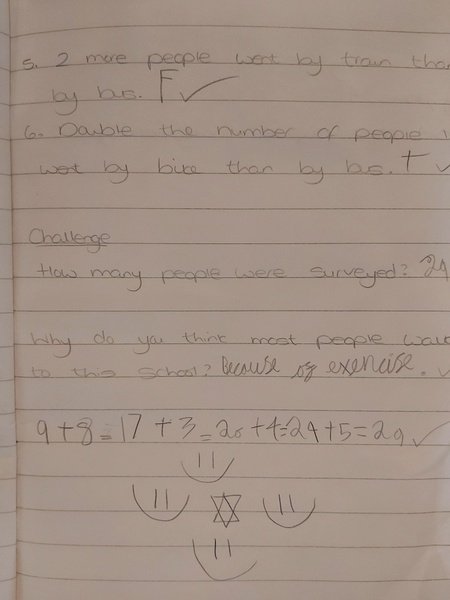 5. 2 more people went by train than
by bus. F ✓
6. Double the number of people
wet by bike than by bus. t ✓
Challenge
How many people were surveyed? 29
Why do you think most people walk
to this school? Because of exercise. ✓
9+8=17+3=20+4=24+5=29 ✓